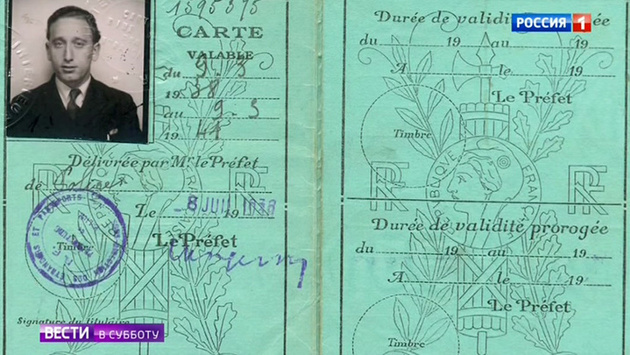 1395375
CARTE
VALABLE
du 9.3
1938
au 9.3
1941
Délivrée par Mr le Préfet
de
Le -8 JUIL 1938
Le Préfet
Timbre
Signature du titulaire
РОССИЯ 1
Durée de validité prorogée
du 19 au 19
A le 19
Le Préfet
Timbre
RF
BLIQUE FRANÇAI
RF
Durée de validité prorogée
du 19 au 19
A le 19
Le Préfet
Timbre
ВЕСТИ В СУББОТУ